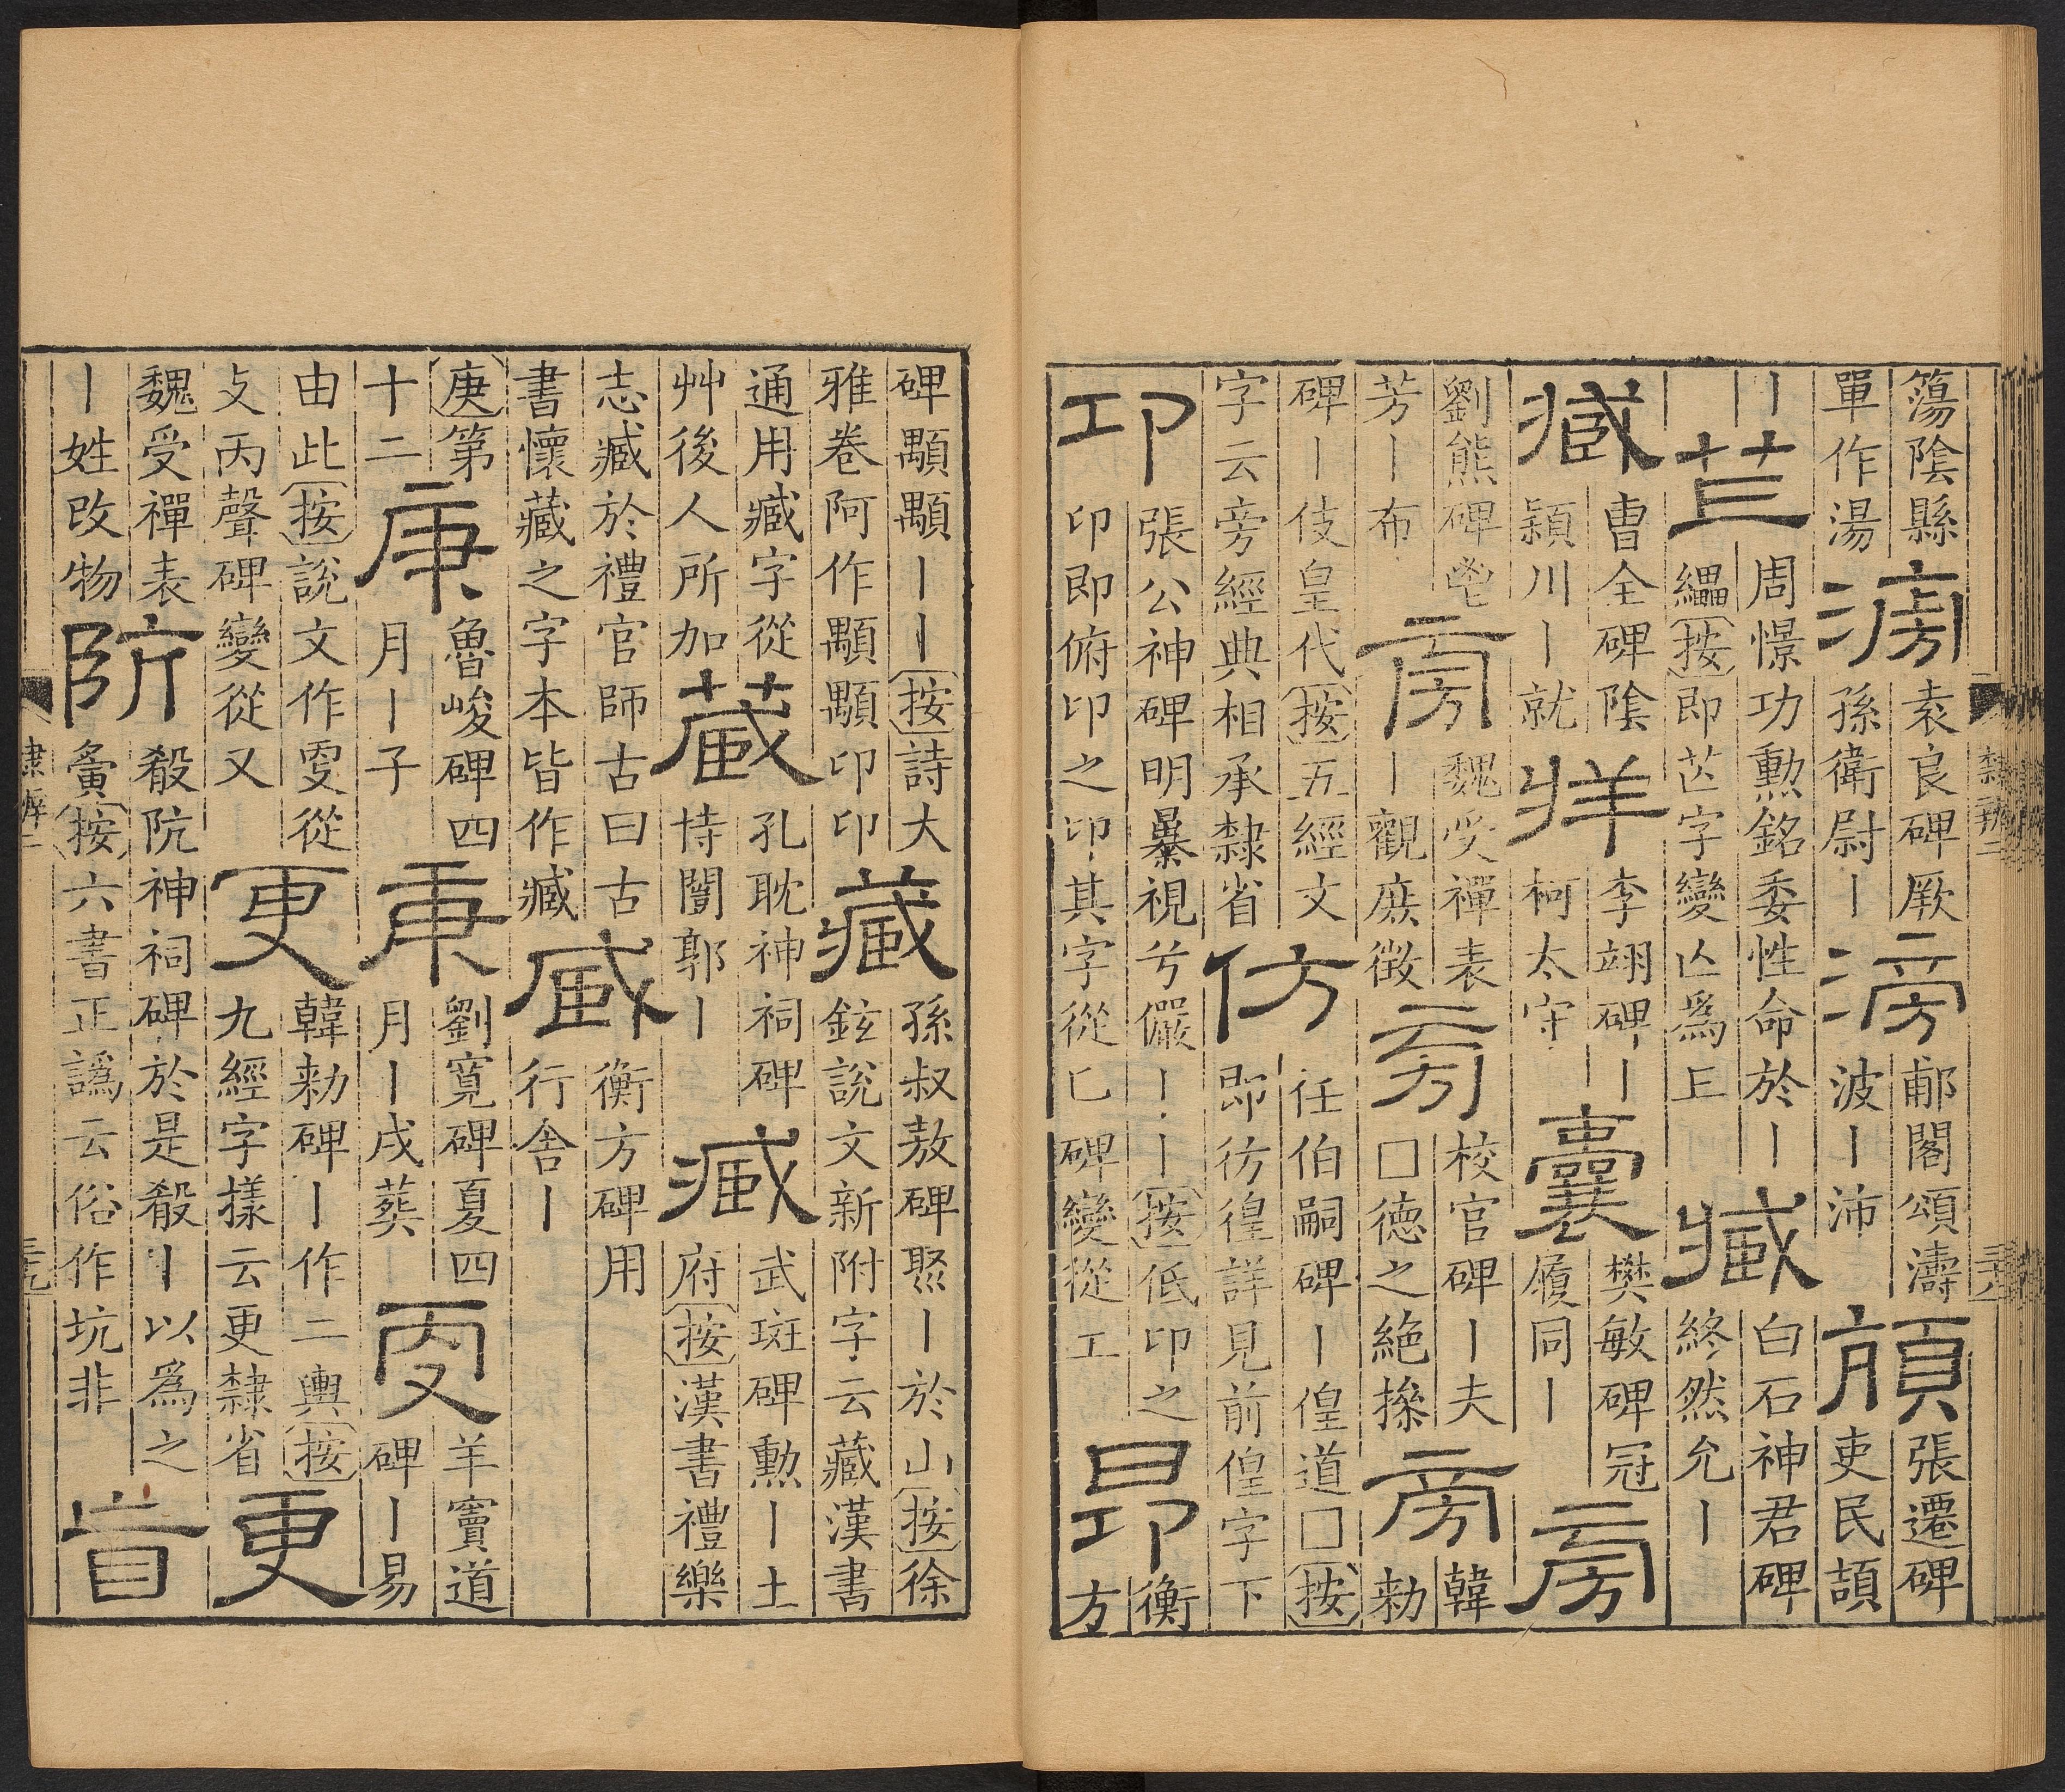 蕩陰縣單作湯滂袁良碑厥孫衛尉丨滂郙閣頌濤波丨沛頏張遷碑吏民頡
丨芒周憬功勳銘委性命於丨按即芒字變亾爲臧白石神君碑終然允丨
臧曹全碑陰潁川丨就牂李翊碑丨柯太守囊樊敏碑冠履同丨旁
劉熊碑芳丨布旁魏受禪表丨觀庶徵旁校官碑丨夫□德之絕操旁韓勑
碑丨伎皇代按五經文字云旁經典相承隸省仿任伯嗣碑丨偟道□按即彷徨詳見前偟字下
卬張公神碑明㬥視兮儼丨丨按低卬之卬即俯卬之卬其字從匕碑變從工昂衡方
碑顒顒丨丨按詩大雅卷阿作顒顒卬卬藏孫叔敖碑聚丨於山按徐鉉說文新附字云藏漢書
通用臧字從艸後人所加藏孔耽神祠碑恃闇郭丨臧武斑碑勳丨土府按漢書禮樂
志臧於禮官師古曰古書懷藏之字本皆作臧臧衡方碑用行舍丨
庚第十二庚魯峻碑四月丨子庚劉寬碑夏四月丨戌葬更羊竇道碑丨易
由此按說文作㪅從攴丙聲碑變從又更韓勑碑丨作二輿按九經字㨾云更隸省更
魏受禪表丨姓改物阬殽阬神祠碑於是殽丨以爲之黌按六書正譌云俗作坑非盲
隸辨二
三九